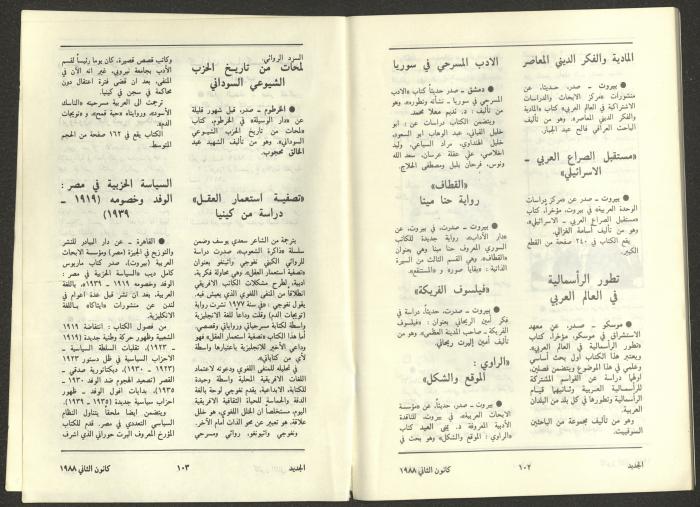 المادية والفكر الديني المعاصر
● بيروت ـ صدر، حديثا، عن
منشورات «مركز الابحاث والدراسات
الاشتراكية في العالم العربي» كتاب «المادية
والفكر الديني المعاصر»، وهو من تأليف
الباحث العراقي فالح عبد الجبار.
«مستقبل الصراع العربي ـ
الاسرائيلي»
● بيروت ـ صدر عن «مركز دراسات
الوحدة العربية» في بيروت، مؤخراً، كتاب
«مستقبل الصراع العربي ـ الاسرائيلي»،
وهو من تأليف أسامة الغزالي.
يقع الكتاب في ٢٤٠ صفحة من القطع
الكبير.
تطور الرأسمالية
في العالم العربي
● موسكو ـ صدر، عن معهد
الاستشراق في موسكو، مؤخراً، كتاب
«تطور الرأسمالية في العالم العربي».
ويعتبر هذا الكتاب أول بحث أساسي
وعلمي في هذا الموضوع ويتضمن فصلين،
اولهما دراسة عن القواسم المشتركة
للرأسمالية العربية وثانيهما قيام
الرأسمالية وتطورها في كل بلد من البلدان
العربية.
وهو من تأليف مجموعة من الباحثين
السوفييت.
الادب المسرحي في سوريا
● دمشق ـ صدر حديثاً كتاب «الادب
المسرحي في سوريا ـ نشأته وتطوره»، وهو
من تأليف : د. نديم معلا محمد.
ويتضمن الكتاب دراسات عن : ابو
خليل القباني، عبد الوهاب ابو السعود،
خليل الهنداوي، مراد السباعي، وليد
اخلاصي، علي عقلة عرسان، سعد الله
ونوس، فرحان بلبل ومصطفى الحلاج.
«القطاف»
رواية حنا مينا
● بيروت ـ صدرت، في بيروت، عن
«دار الآداب»، رواية جديدة للكاتب
السوري المعروف حنا مينا وهي بعنوان
«القطاف». وهي القسم الثالث من السيرة
الذاتية : «بقايا صور» و «المستنقع».
«فيلسوف الفريكة»
● بيروت ـ صدرت، حديثاً، دراسة في
فكر أمين الريحاني بعنوان : «فيلسوف
الفريكة ـ صاحب المدينة العظمى». وهو من
تأليف أمين ألبرت ريحاني.
«الراوي :
الموقع والشكل»
● بيروت ـ صدر، حديثاً، عن «مؤسسة
الابحاث العربية»، في بيروت، للناقدة
الادبية المعروفة د. يمنى العيد كتاب
«الراوي : الموقع والشكل» وهو بحث في
الجديد
١٠٢
كانون الثاني ١٩٨٨
السرد الروائي.
لمحات من تاريخ الحزب
الشيوعي السوداني
● الخرطوم ـ صدر، قبل شهور قليلة
عن «دار الوسيلة» في الخرطوم، كتاب
«لمحات من تاريخ الحزب الشيوعي
السوداني». وهو من تأليف الشهيد عبد
الخالق محجوب.
«تصفية استعمار العقل»
دراسة من كينيا
بترجمة من الشاعر سعدي يوسف وضمن
سلسلة «ذاكرة الشعوب»، صدرت دراسة
للروائي الكيني نغوجي واثيونغو بعنوان
«تصفية استعمار العقل». وهي محاولة فكرية،
ادبية، لطرح مشكلات الكاتب الافريقي
انطلاقاً من المنفى اللغوي الذي يعيش فيه.
يقول نغوجي : «في سنة ١٩٧٧ نشرت رواية
(تويجات الدم) وقلت وداعاً للغة الانجليزية
واسطة لكتابة مسرحياتي ورواياتي وقصصي.
أما هذا الكتاب «تصفية استعمار العقل» فهو
وداعي الأخير للانجليزية باعتبارها واسطة
لأي من كتاباتي».
في تحليله للمنفى اللغوي ودعوته لاعتماد
اللغات الافريقية المحلية واسطة وحيدة
للكتابة، الابداعية، يقدم نغوجي لوحة بالغة
الدقة والحماسة للحياة الثقافية الافريقية
اليوم، مستخلصاً ان الخلل اللغوي، هو خلل
علاقة. هو تعبير عن محو الذات أمام الآخر.
ونغوجي واثيونغو، روائي ومسرحي
وكاتب قصص قصيرة، كان يوماً رئيساً لقسم
الأدب بجامعة نيروبي، غير انه الآن في
المنفى، بعد ان قضى فترة اعتقال دون
محاكمة في سجن في كينيا.
ترجمت الى العربية مسرحيته «الناسك
الأسود»، وروايتاه «حبة قمح»، و «تويجات
الدم».
الكتاب يقع في ١٦٢ صفحة من الحجم
المتوسط.
السياسة الحزبية في مصر :
الوفد وخصومه (١٩١٩ ـ
١٩٣٩)
● القاهرة ـ عن دار البيادر للنشر
والتوزيع في الجيزة / مصر ومؤسسة الابحاث
العربية (بيروت)، صدر كتاب ماريوس
كامل ديب «السياسة الحزبية في مصر :
الوفد وخصومه ١٩١٩ ـ ١٩٣٩»، باللغة
العربية، بعد ان نشر قبل عدة أعوام في
لندن عن منشورات «ايثاكا» باللغة
الانكليزية.
من فصول الكتاب : انتفاضة ١٩١٩
الشعبية وظهور حركة وطنية جديدة (١٩١٩
ـ ١٩٢٣)، تقلبات السلطة السياسية ـ
الاحزاب السياسية في ظل دستور ١٩٢٣
(١٩٢٣ ـ ١٩٣٠)، ديكتاتورية صدقي ـ
القصر (تصعيد الهجوم ضد الوفد ١٩٣٠ ـ
١٩٣٥)، بدايات افول الوفد ـ ظهور
احزاب سياسية جديدة (١٩٣٥ ـ ١٩٣٩).
ويتضمن ايضا ملحقاً يتناول النظام
السياسي التعددي في مصر. قدم للكتاب
المؤرخ المعروف البرت حوراني الذي اشرف
الجديد
١٠٣
كانون الثاني ١٩٨٨